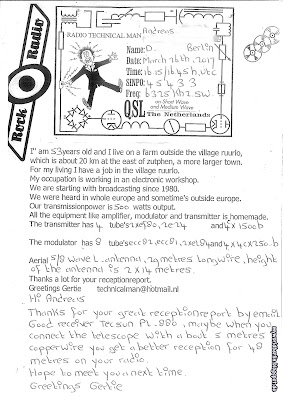 Andreas
RADIO TECHNICAL MAN
Name: D. Berlin
Date: March 26th, 2017
Time: 16.15/16.45 h, utc
SINFO: 4 5 4 3 3
Freq: 6325 kHz. SW.
on Short Wave
and Medium Wave
QSL
The Netherlands
Rock Radio
I'' am 53 years old and I live on a farm outside the village ruurlo,
which is about 20 km at the east of zutphen, a more larger town.
For my living I have a job in the village ruurlo.
My occupation is working in an electronic workshop.
We are starting with broadcasting since 1980.
We were heard in whole europe and sometime's outside europe.
Our transmissionpower is 500 watts output.
All the equipment like amplifier, modulator and transmitter is homemade.
The transmitter has 4 tube's 2xel80, 2e24 and 4x1500b
The modulator has 8 tube's ecc82, ecc81, 2xel84 and 4x4cx250b
Aerial 5/8 wave L. antenna, 29 metres longwire, height
of the antenna is 2 x 14 metres.
Thanks a lot for your receptionreport.
Greetings Gertie technicalman@hotmail.nl
Hi Andreas
Thanks for your great reception report by email
Good receiver Tecsun PL.880, maybe when you
connect the telescope with about 5 metres
copperwire you get a better reception for 48
metres on your radio.
Hope to meet you a next time.
Greetings Gertie